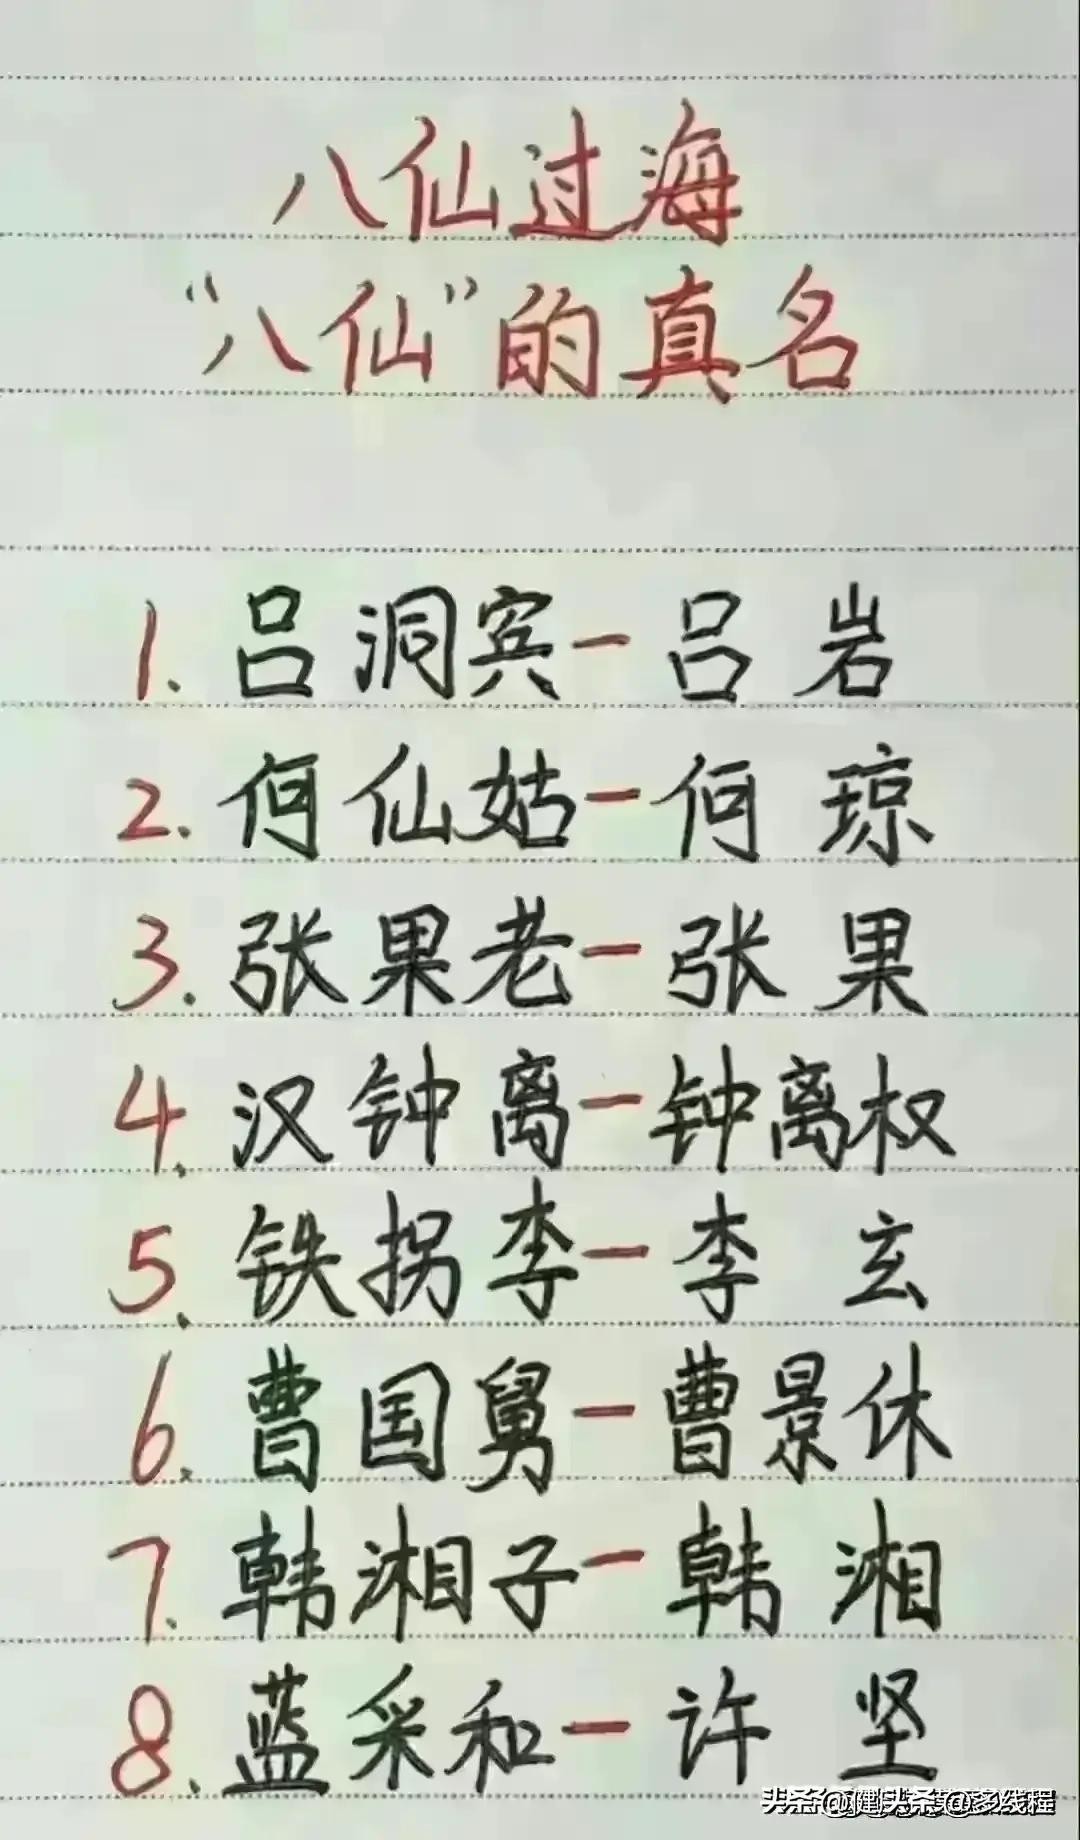 八仙过海
“八仙”的真名
1.吕洞宾－吕岩
2.何仙姑－何琼
3.张果老－张果
4.汉钟离－钟离权
5.铁拐李－李玄
6.曹国舅－曹景休
7.韩湘子－韩湘
8.蓝采和－许坚